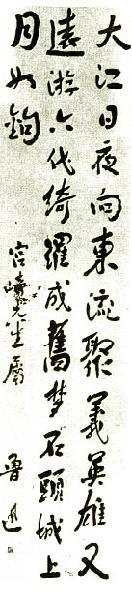 大江日夜向東流聚義英雄又
遠游六代綺羅成舊梦石頭城上
月如鉤
宮崎先生屬 魯迅